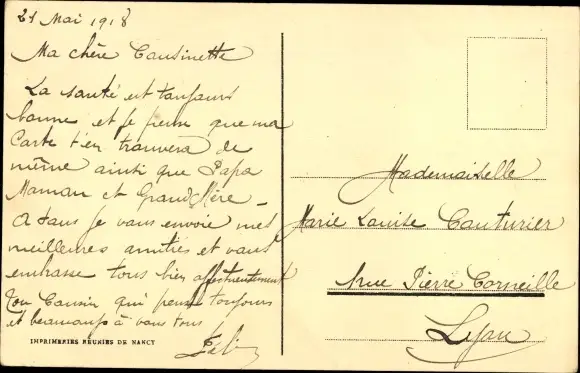 21 Mai 1918
Ma chère Cousinette
La santé est toujours
bonne et je pense que ma
Carte t'en trouvera de
même ainsi que Papa
Maman et Grand Mère –
A tous je vous envoie mes
meilleures amitiés et vous
embrasse tous bien affectueusement
Ton Cousin qui pense toujours
et beaucoup à vous tous
IMPRIMERIES RÉUNIES DE NANCY
Mademoiselle
Marie Louise Couturier
rue Pierre Corneille
Lyon